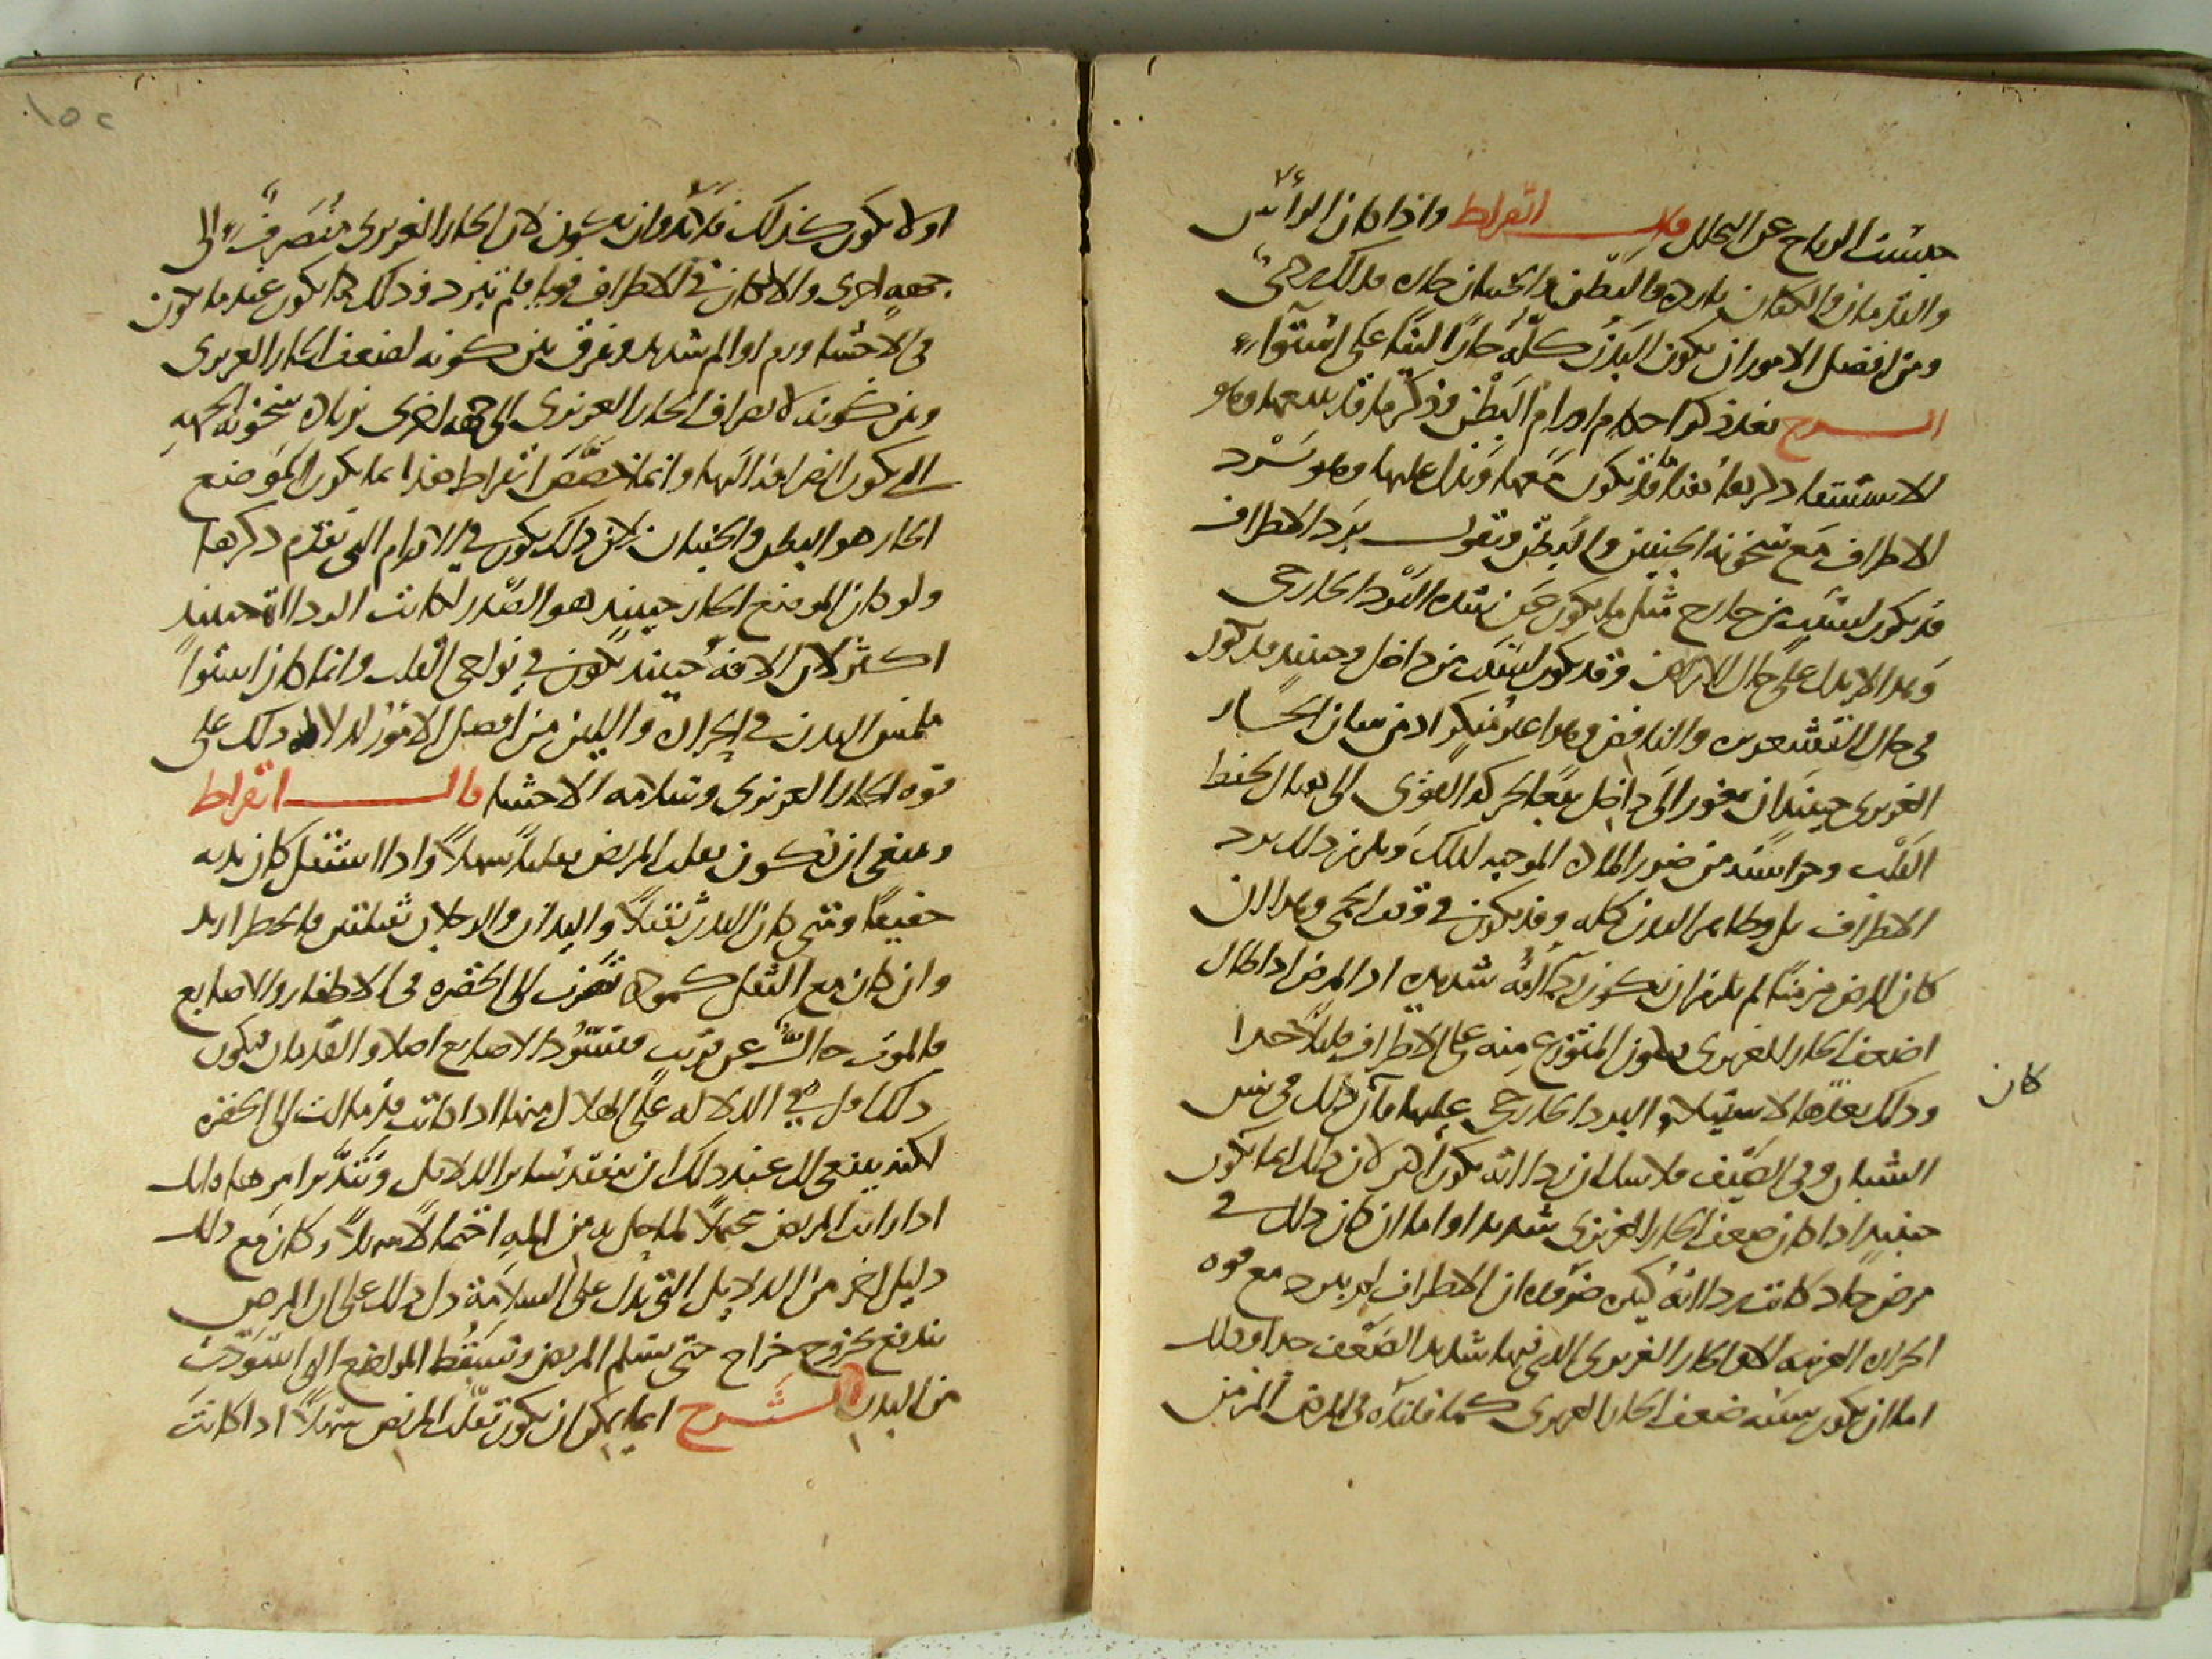 حبست الرياح عن التحلل قال ابقراط واذا كان الرأس
واليدان والقدمان باردة والبطن والجنبان حارة فذلك ردئ
ومن افضل الامور ان يكون البدن كله حارا لينا على استواء
الشرح بعد ذكر احكام اورام البطن وذكر ما قد يتبعها وهو
الاستسقا ذكر بعد هذا ما قد يكون معها ويدل عليها وهو برد
الاطراف مع سخونة الجنبين والبطن ونقول برد الاطراف
قد يكون لسبب من خارج مثل ما يكون عن شدة البرد الخارجي
وهذا لا يدل على حال الامراض وقد يكون لسبب من داخل وحينئذ قد يكون
في حال القشعريرة والنافض وهذا غير منكر اذ من شان الحار
الغريزي حينئذ ان يغور الى داخل تبعا لحركة القوى الى هناك لحفظ
القلب وحراسته من ضرر المادة الموجبة لذلك ويلزم ذلك برد
الاطراف بل وظاهر البدن كله وقد يكون في وقت الحمى وهذا ان
كان المرض مزمنا لم يلزم ان يكون رداءته شديدة اذ المرض اذا طال
اضعف الحار الغريزي فيكون المتوزع منه على الاطراف قليلا جدا
وذلك يعدها لاستيلاء البرد الخارجي عليها فان كان ذلك في سن
كان
الشباب وفي الصيف فلا شك ان رداءته يكون اكثر لان ذلك انما يكون
حينئذ اذا كان ضعف الحار الغريزي شديدا واما ان كان ذلك في
مرض حاد كانت رداءته كبيرة ضرورة ان الاطراف لم يبرد مع قوة
الحرارة الغريبة الا والحار الغريزي الذي فيها شديد الضعف جدا وذلك
اما ان يكون سببه ضعف الحار الغريزي كما قلناه في المرض المزمن
اولا يكون كذلك فلا بد وان يكون لان الحار الغريزي منصرف الى
جهة اخرى والا لكان في الاطراف قويا فلم تبرد وذلك انما يكون عندما يكون
في الاحشا ورم او الم شديد ويفرق بين كونه لضعف الحار الغريزي
وبين كونه لانصراف الحار الغريزي الى جهة اخرى بزيادة سخونة الجهة
التي يكون انصرافه اليها وانما خصص ابقراط هذا بما يكون الموضع
الحار هو البطن والجنبان لان ذلك يكون في الاورام التي تقدم ذكرها
ولو كان الموضع الحار حينئذ هو الصدر لكانت الرداءة حينئذ
اكثر لان الافة حينئذ تكون في نواحي القلب وانما كان استوا
ملمس البدن في الحرارة واللين من افضل الامور لدلالة ذلك على
قوة الحار الغريزي وسلامة الاحشا قال ابقراط
وينبغي ان تكون تقلب المريض تقلبا سهلا واذا استقل كان بدنه
خفيفا ومتى كان البدن ثقيلا واليدان والرجلان ثقيلتين فالخطر ازيد
وان كان مع الثقل كمودة تضرب الى الخضرة في الاظفار والاصابع
فالموت حال عن قريب وتسود الاصابع اصلا والقدمان فيكون
ذلك اقل في الدلالة على الهلاك منها اذا كانت قد مالت الى الخضرة
لكنه ينبغي لك عند ذلك ان تتفقد سائر الدلائل وتتدبر امرها فانك
اذا رايت المريض محتملا لما حل به من الم احتمالا سهلا وكان مع ذلك
دليل اخر من الدلايل التي تدل على السلامة دل ذلك على ان المرض
يندفع بخروج خراج حتى يسلم المريض وتسقط المواضع التي اسودت
من البدن الشرح انما يمكن ان يكون تقلب المريض سهلا اذا كانت